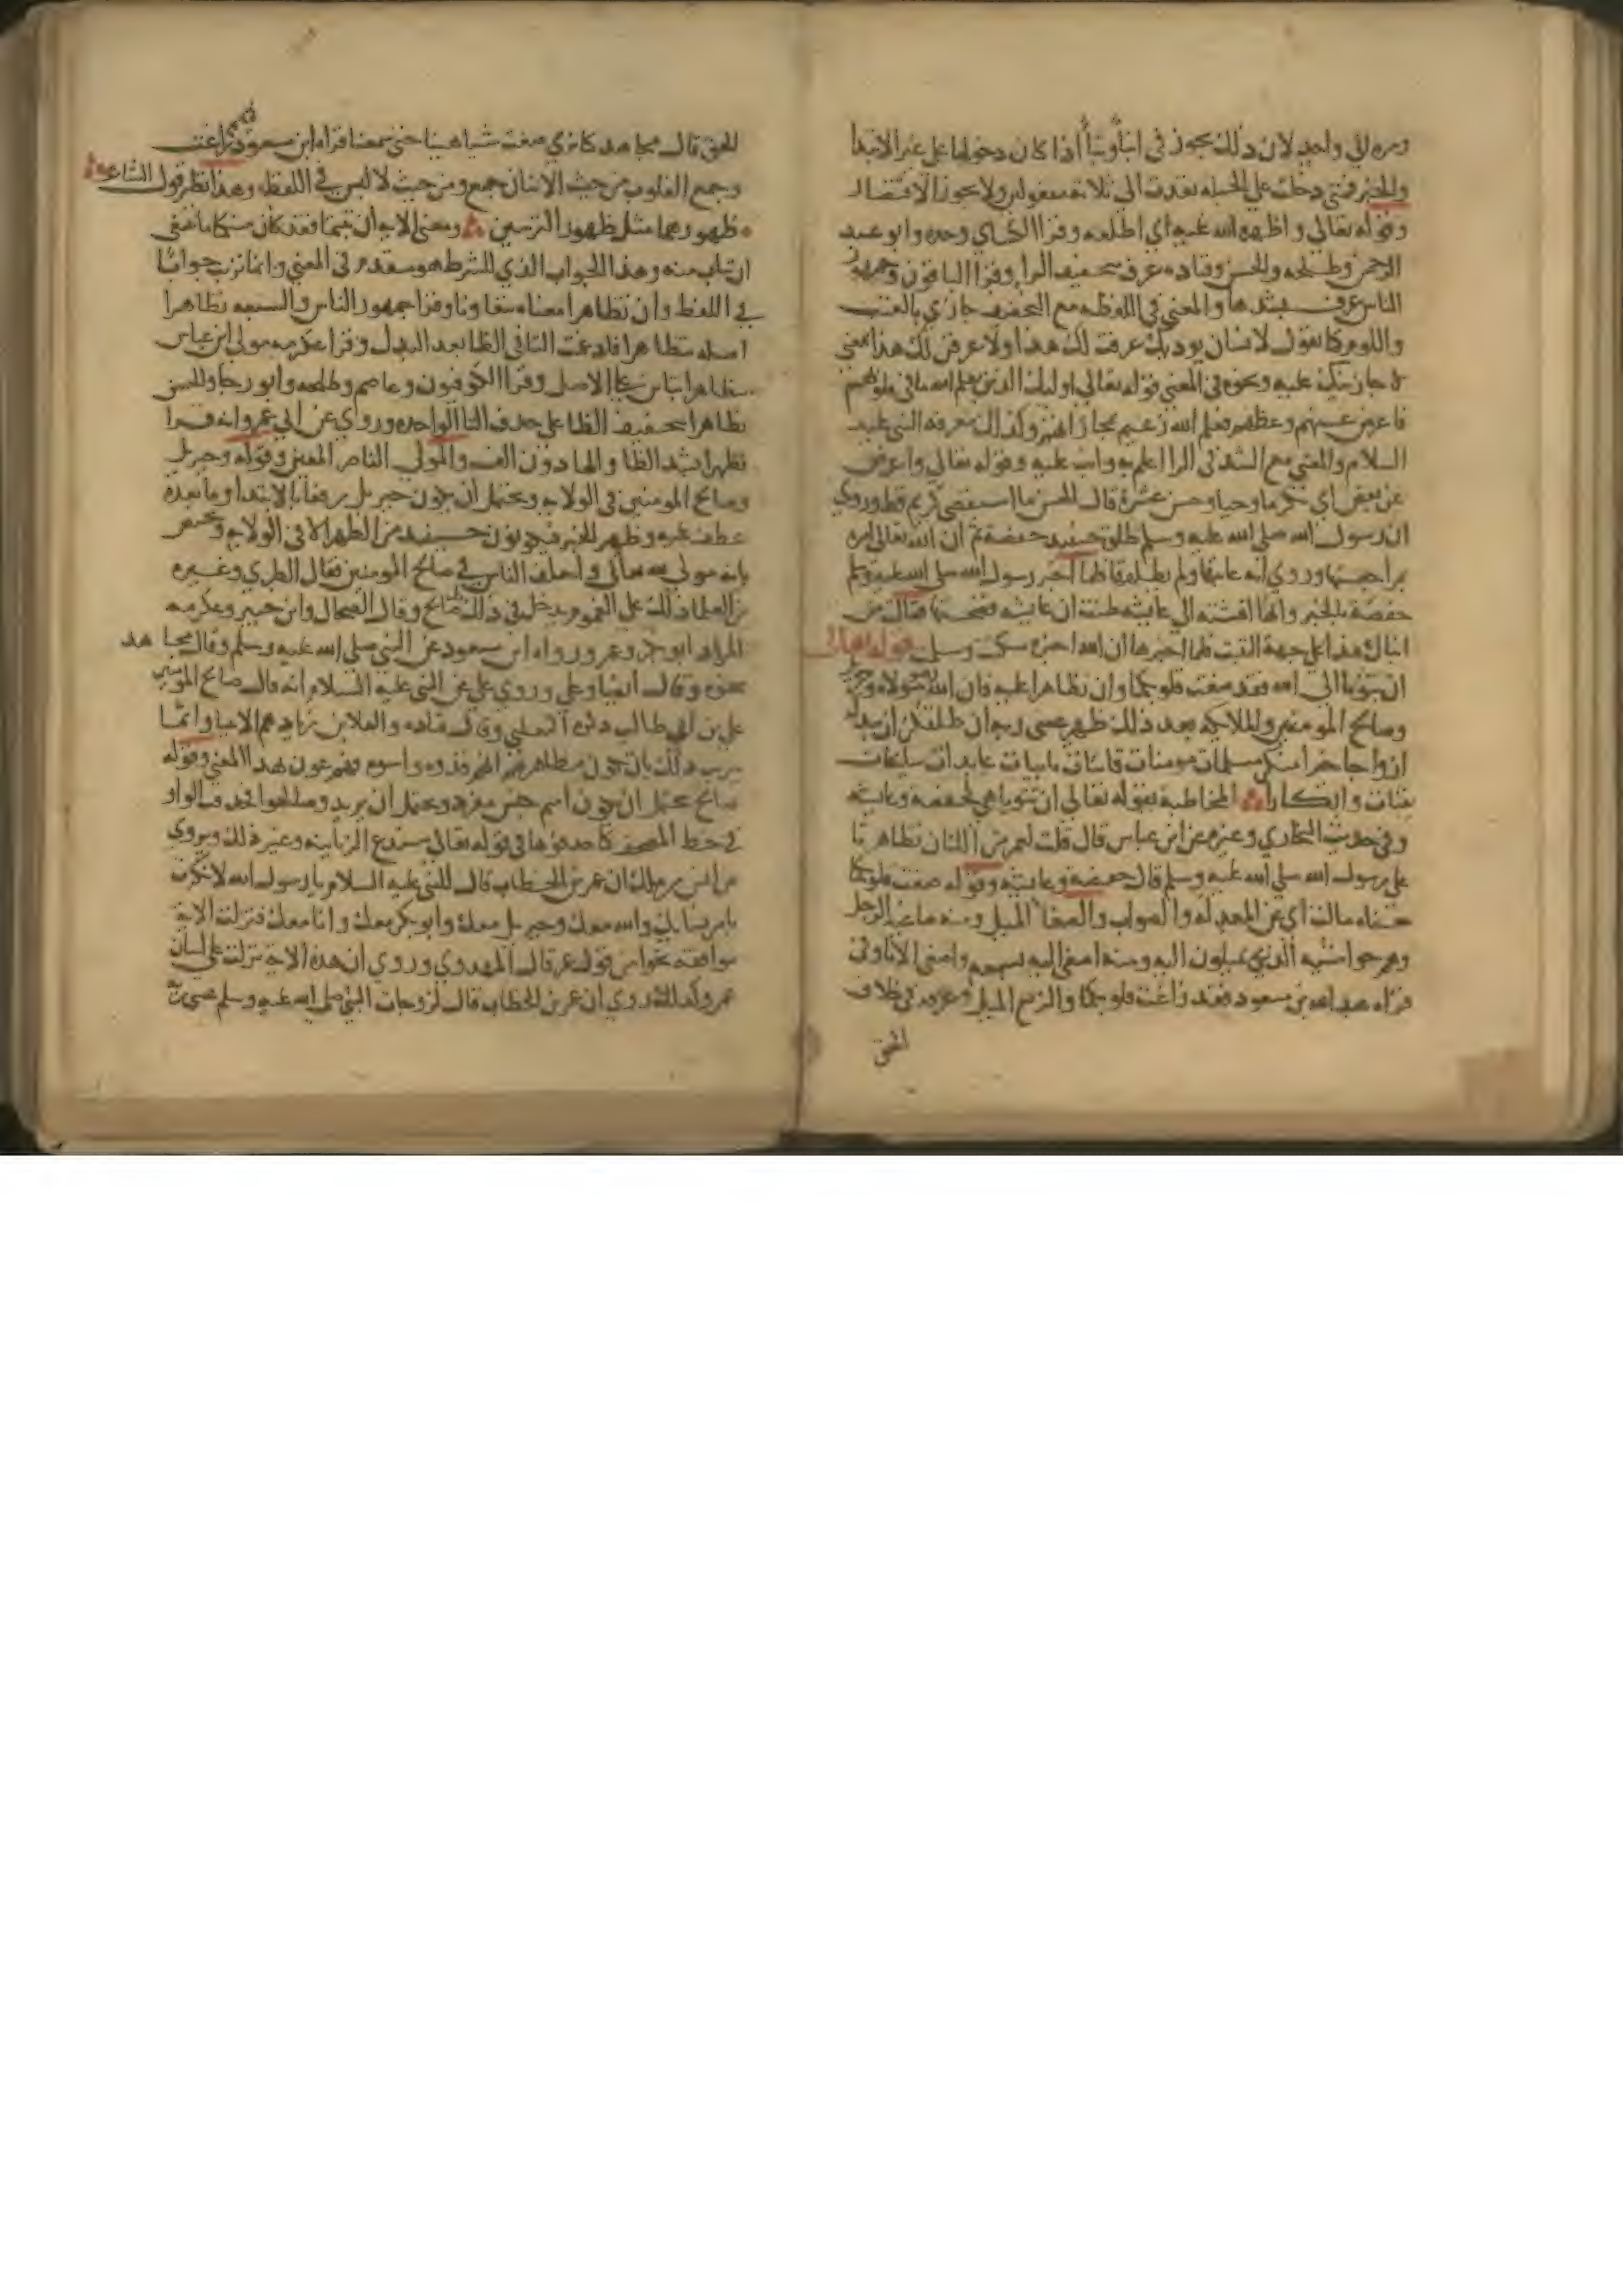 ومرة إلى واحد لان ذلك يجوز في انبأ ونبأ اذا كان دخولها على غير الابتدا
والخبر فمتى دخلت على الجملة تعدت الى ثلاثة مفعولين ولا يجوز الاقتصار
وقوله تعالى واظهره الله عليه اي اطلعه وقرا الكساي وحده وابو عبد
الرحمن وطلحه والحسن وقتاده عرف بتخفيف الرا وقرا الباقون وجمهور
الناس عرف بشدها والمعنى في اللفظه مع التخفيف جازي بالعتب
واللوم كما تقول لانسان يوذيك عرفت لك هذا ولاعرفن لك هذا بمعنى
لاجازينك عليه ونحوه في المعنى قوله تعالى اوليك الذين يعلم الله ما في قلوبهم
فاعرض عنهم وعظهم فعلم الله زعيم بمجازاتهم وكذلك معرفة النبي عليه
السلام والمعنى مع الشد في الرا اعلم به وانب عليه وقوله تعالى واعرض
عن بعض اي تكرما وحيا وحسن عشرة قال الحسن ما استقصى كريم قط وروي
ان رسول الله صلى الله عليه وسلم طلق حينيد حفصة ثم ان الله تعالى امره
بمراجعتها وروي انه عاتبها ولم يطلقها فلما اخبر رسول الله صلى الله عليه وسلم
حفصة بالخبر وانها افشته الى عايشه ظنت ان عايشه فضحتها فقالت من
انباك هذا على جهة التثبت فلما اخبرها ان الله اخبره سكتت وسلمت قوله تعالى
ان تتوبا الى الله فقد صغت قلوبكما وان تظاهرا عليه فان الله هو مولاه وجبريل
وصالح المومنين والملايكه بعد ذلك ظهير عسى ربه ان طلقكن ان يبدله
ازواجا خيرا منكن مسلمات مومنات قانتات تايبات عابدات سايحات
ثيبات وابكارا المخاطبة بقوله تعالى ان تتوبا هي لحفصه وعايشه
وفي حديث البخاري وغيره عن ابن عباس قال قلت لعمر من اللتان تظاهرتا
على رسول الله صلى الله عليه وسلم قال حفصه وعايشه وقوله صغت قلوبكما
معناه مالت اي عن المعدلة والصواب والصغا الميل ومنه صاغية الرجل
وهم حواشيه الذين يميلون اليه ومنه اصغى اليه بسمعه واصغى الانا وفي
قراه عبد الله بن مسعود فقد زاغت قلوبكما والزيغ الميل وعرفه في خلاف
الحق
الحق قال مجاهد كنا نرى صغت شيا هينا حتى سمعنا قراه ابن مسعود زاغت
وجمع القلوب من حيث الاثنان جمع ومن حيث لا لبس في اللفظ وهذا نظير قول الشاعر
ظهورهما مثل ظهور الترسين ومعنى الايه ان تبتما فقد كان منكما ما ينبغي
ان يتاب منه وهذا الجواب الذي للشرط هو متقدم في المعنى وانما ترتب جوابا
في اللفظ وان تظاهرا معناه تتعاونا وقرا جمهور الناس والسبعه تظاهرا
اصله تتظاهرا فادغمت التا في الظا بعد البدل وقرا عكرمه مولى ابن عباس
تتظاهرا بتاين على الاصل وقرا الكوفيون وعاصم وطلحه وابو رجا والحسن
تظاهرا بتخفيف الظا على حذف التا الواحده وروي عن ابي عمرو انه قرا
تظهرا بشد الظا والها دون الف والمولى الناصر المعين وقوله وجبريل
وصالح المومنين في الولايه ويحتمل ان يكون جبريل رفعا بالابتدا وما بعده
عطف عليه وظهير الخبر فيكونون حينيد من الظهرا لا في الولايه ويختص
بانه مولى الله تعالى واختلف الناس في صالح المومنين فقال الطبري وغيره
من العلما ذلك على العموم ويدخل في ذلك كل صالح وقال الضحاك وابن جبير وعكرمه
المراد ابو بكر وعمر ورواه ابن مسعود عن النبي صلى الله عليه وسلم وقال مجاهد
نحوه وقال ايضا وعلي وروى علي عن النبي عليه السلام انه قال صالح المومنين
علي بن ابي طالب ذكره الثعلبي وقال قتاده والعلا بن زياد هم الانبيا وانما
يترتب ذلك بان تكون مظاهرتهم انهم قدوه واسوه فهم عون بهذا المعنى وقوله
صالح يحتمل ان يكون اسم جنس مفرد ويحتمل ان يريد وصالحوا فحذفت الواو
في خط المصحف كما حذفوها في قوله تعالى سندع الزبانيه وغير ذلك ويروى
عن انس بن مالك ان عمر بن الخطاب قال للنبي عليه السلام يا رسول الله لا تكترث
بامر نسايك والله معك وجبريل معك وابو بكر معك وانا معك فنزلت الاية
موافقة نحوا من قول عمر قال المهدوي وروي ان هذه الاية نزلت على لسان
عمر وكذلك روي ان عمر بن الخطاب قال لزوجات النبي صلى الله عليه وسلم عسى ربه